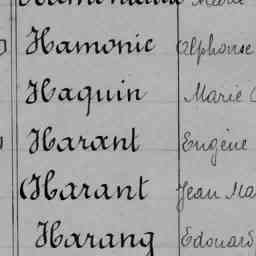 Hamonic Alphonse
Haquin Marie
Harant Eugène
Harant Jean Ma
Harang Edouard